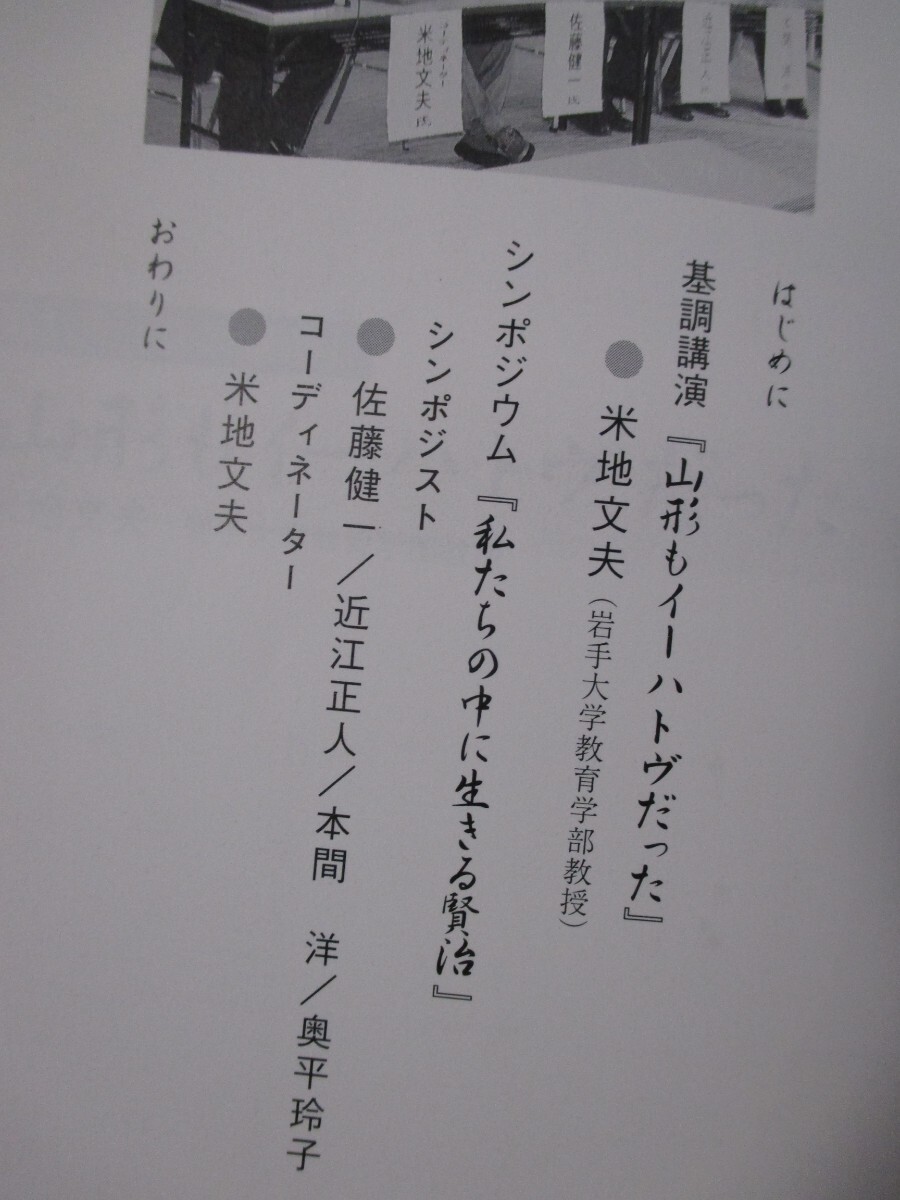 コーディネーター
米地文夫氏
佐藤健一氏
はじめに
基調講演『山形もイーハトヴだった』
●米地文夫(岩手大学教育学部教授)
シンポジウム『私たちの中に生きる賢治』
シンポジスト
●佐藤健一/近江正人/本間 洋/奥平玲子
コーディネーター
●米地文夫
おわりに